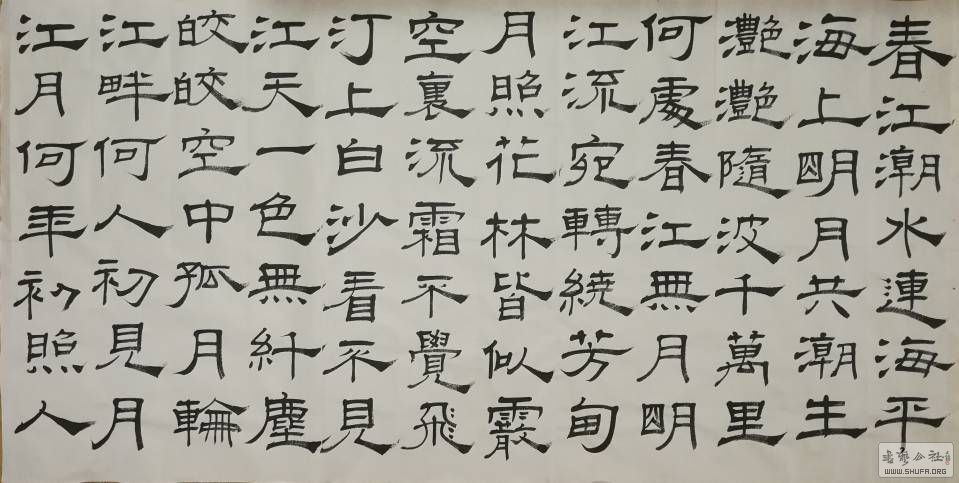 春江潮水連海平
海上明月共潮生
灧灧隨波千萬里
何處春江無月明
江流宛轉繞芳甸
月照花林皆似霰
空裏流霜不覺飛
汀上白沙看不見
江天一色無纤塵
皎皎空中孤月輪
江畔何人初見月
江月何年初照人
WWW.SHUFA.ORG